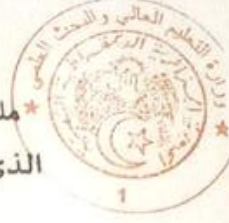 وزارة التعليم العالي و البحث العلمي
الجمهورية الجزائرية الديمقراطية الشعبية
1
الذي